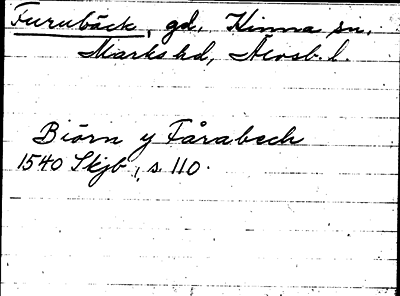 Furubäck, gd, Kinna sn,
Marks hd, Älvsb. l.
Biörn y Fårabech
1540 Skjb, s 110.